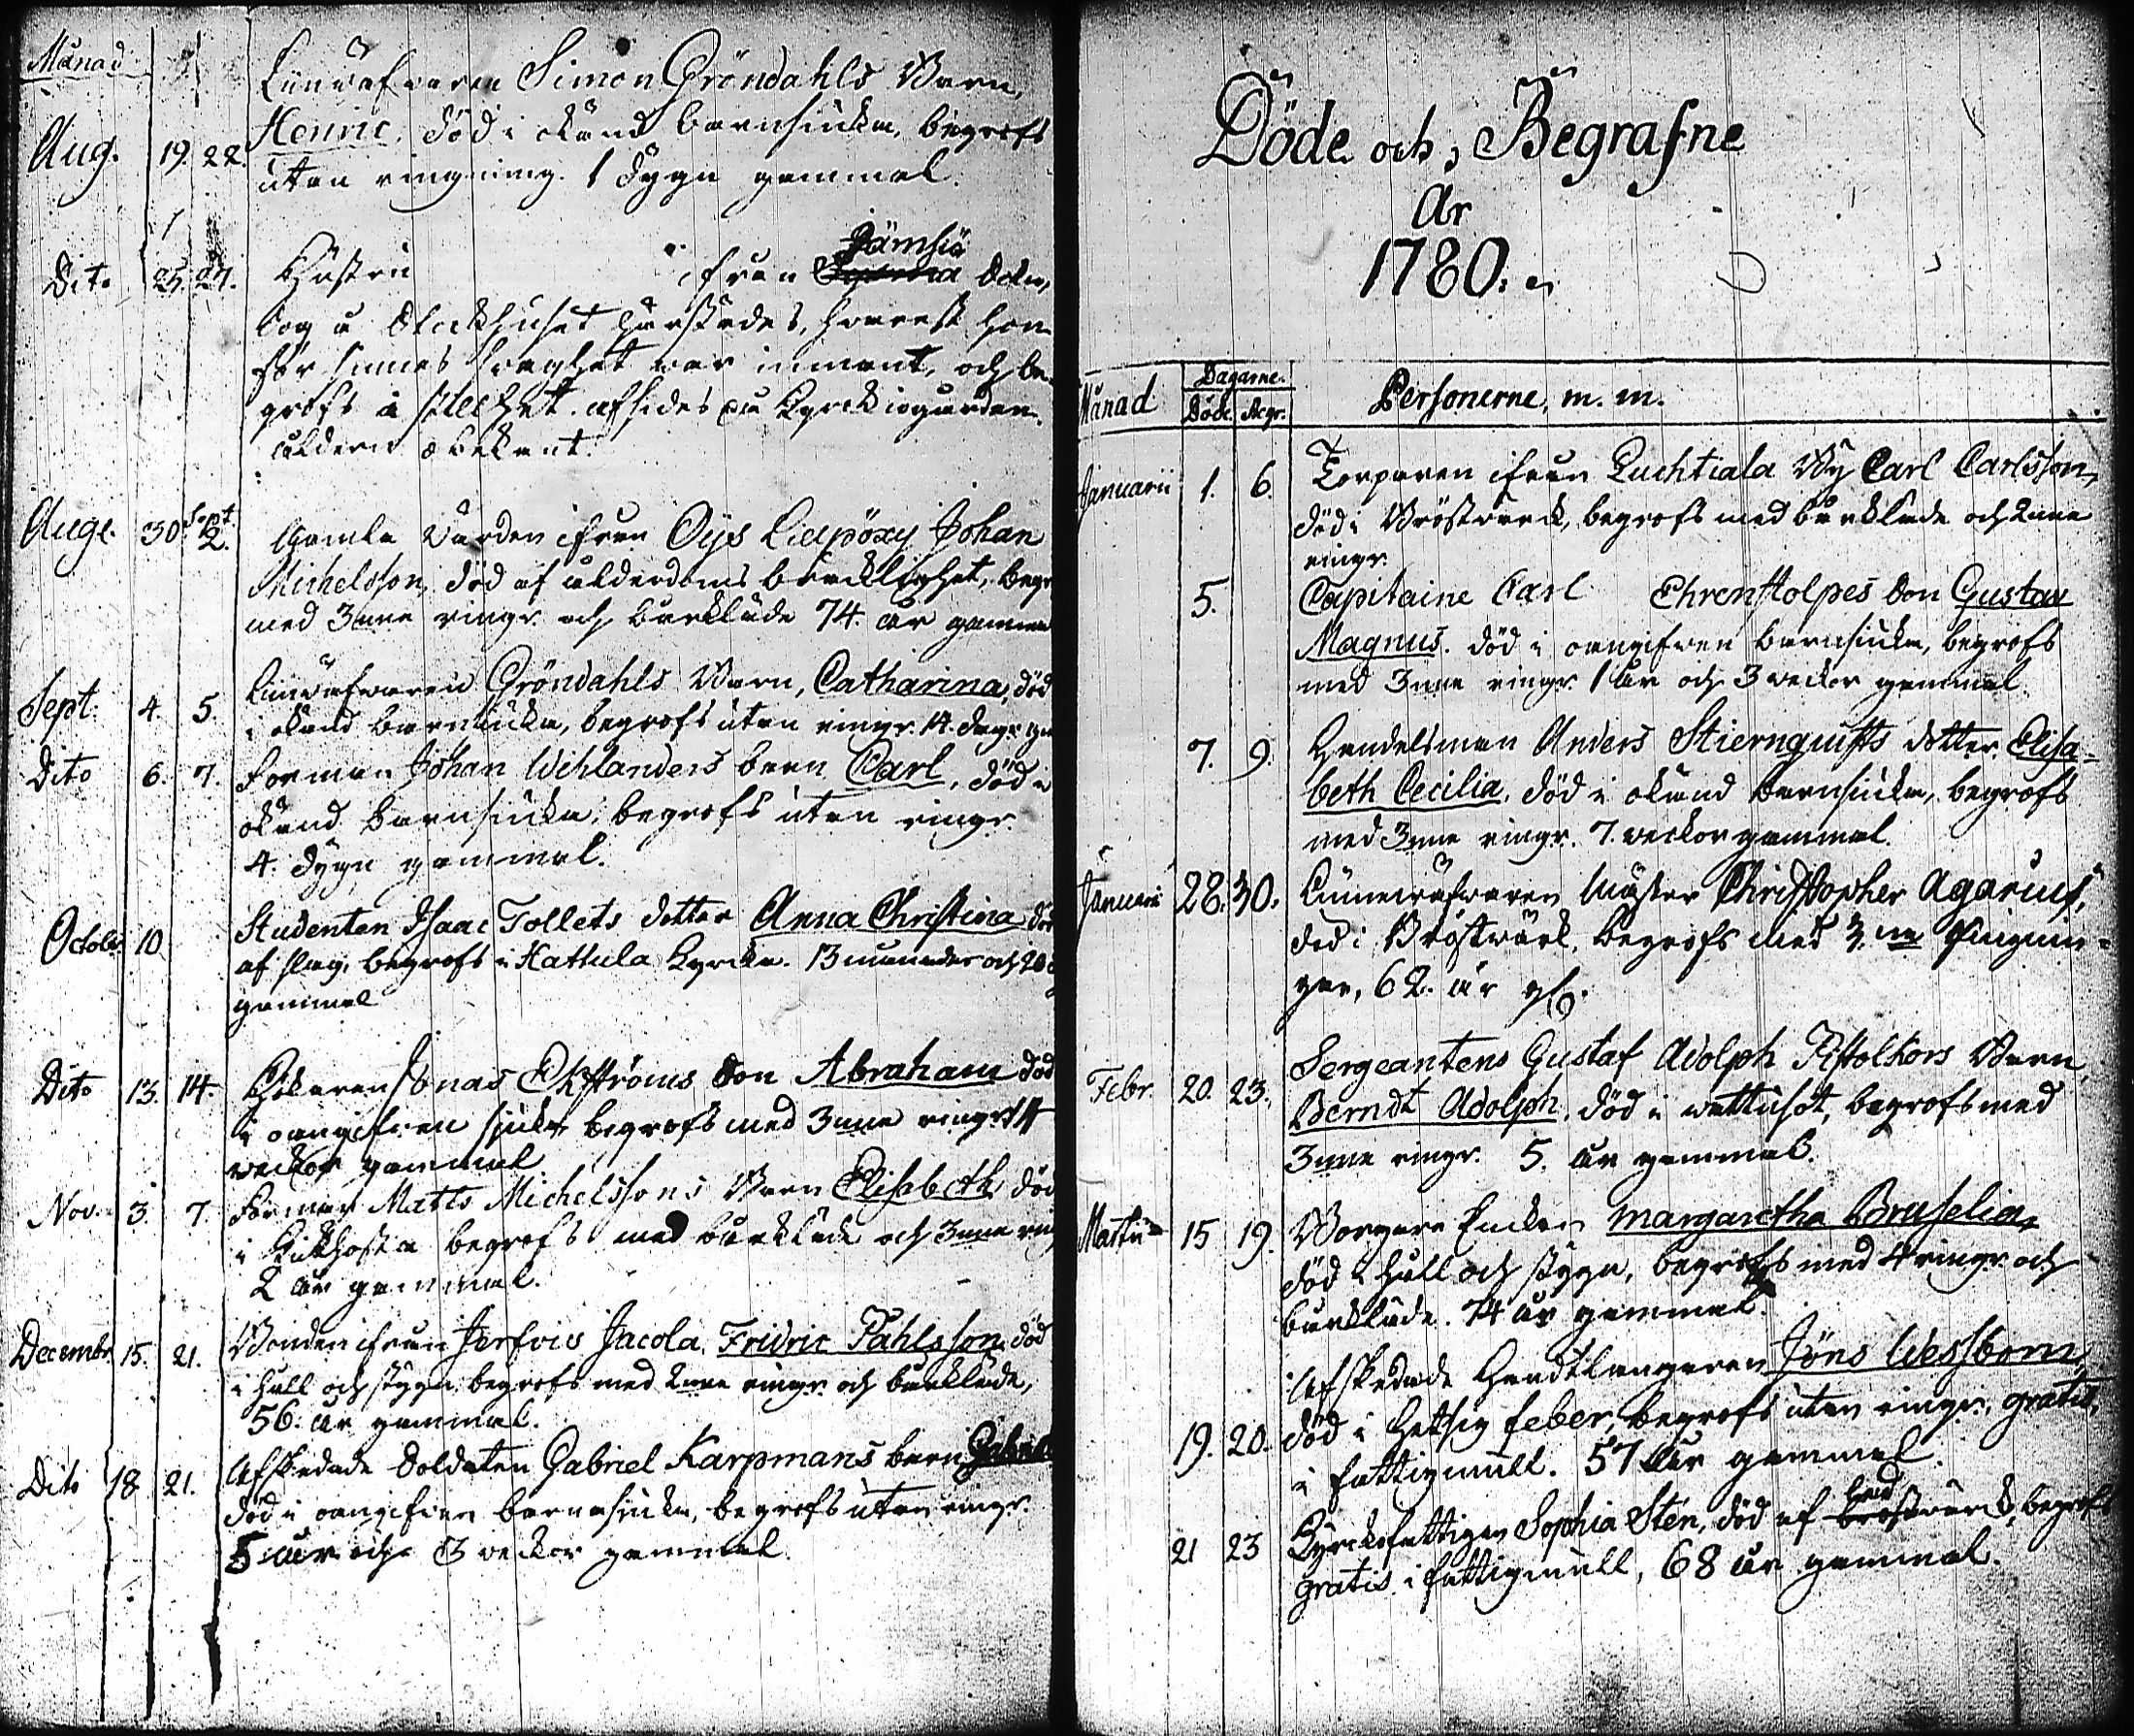 Månad
Linväfvaren Simon Gröndahls Barn,
Aug. 19. 22. Henric, död i okänd barnsiuka, begrofs
utan ringning. 1 dygn gammal.
Dito 25. 27. Hustru ifrån Jämsiö Sokn,
tog å härstädes, hvarest hon
för sinnes svaghet var inmant, och be-
grofs i stillhet afsides på Kyrkiogården.
ålderen obekant.
Aug. 30 Sept. 2. Gamla Värden ifrån Oÿs Johan
Michelsson, död af ålderdoms bräcklighet, begr.
med 3nne ringr. och bårkläde 74. år gammal
Sept. 4. 5. Linväfvaren Gröndahls Barn, Catharina, död
i okänd barnsiuka, begrofs utan ringr. 14 dagr
Dito 6. 7. Forman Johan Wihlanders barn Carl, död i
okänd barnsiuka, begrofs utan ringr.
4. dygn gammal.
Octobr 10 Studenten Isaac Tollets dotter Anna Christina död
af slag, begrofs i Hattula Kyrcka. 13 månader och 20
gammal
Dito 13. 14. Jonas Ekströms Son Abraham död
i oangifven siuka begrofs med 3nne ringr. 14
veckor gammal.
Nov. 3. 7. Forman Matts Michelssons Barn Elisabeth död
i Kikhosta begrofs med bårkläde och 3nne ring
2 år gammal.
Decembr. 15. 21. Bonden ifrån Jerfvis Jacola, Fridric Påhlsson död
i håll och stygn, begrofs med 2nne ringr. och bårkläde,
56. år gammal.
Dito 18. 21. Afskedade Soldaten Gabriel Karpmans barn Gabriel
död i oangifven barnasiuka, begrofs utan ringr.
5 år och 3 veckor gammal.
Döde och Begrafne
År
1780.
Månad Dagarne. Personerne, m. m.
Död. Begr.
Januarii 1. 6. Torparen ifrån Luchtiala By Carl Carlsson,
död i Bröstvärck, begrofs med bårkläde och 2nne
ringr.
5. Capitaine Carl Ehrenstolpes Son Gustav
Magnus. död i oangifven barnsiuka, begrofs
med 3nne ringr. 1 år och 3 veckor gammal.
7. 9. Handelsman Anders Stiernquists dotter Elisa-
beth Cecilia, död i okänd barnsiuka, begrofs
med 3nne ringr. 7. veckor gammal.
Januarii 28. 30. Linneväfvaren Mäster Christopher Agarius,
död i Bröstvärk, begrofs med 3.ne Ringnin-
gar, 62. år
Febr. 20. 23. Sergeantens Gustaf Adolph Pistolkors Barn,
Berndt Adolph, död i vattusot, begrofs med
3nne ringr. 5. år gammal.
Martii 15 19. Borgare Enckan Margaretha Bruselia,
död i håll och stygn, begrofs med 4 ringr. och
bårkläde. 74 år gammal.
Afskedade Handtlangaren Jöns Wessbom,
19. 20. död i Hettsig feber, begrofs utan ringr. gratis,
i fattigmull. 57 år gammal.
21 23 Kyrckofattigan Sophia Stén, död af begrofs
gratis i fattigmull, 68 år gammal.